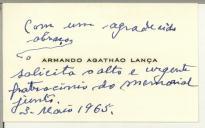 Com um agradecido
abraço
o
ARMANDO AGATHÃO LANÇA
solicita o alto e urgente
patrocínio do memorial
junto.
3. Maio 1965.